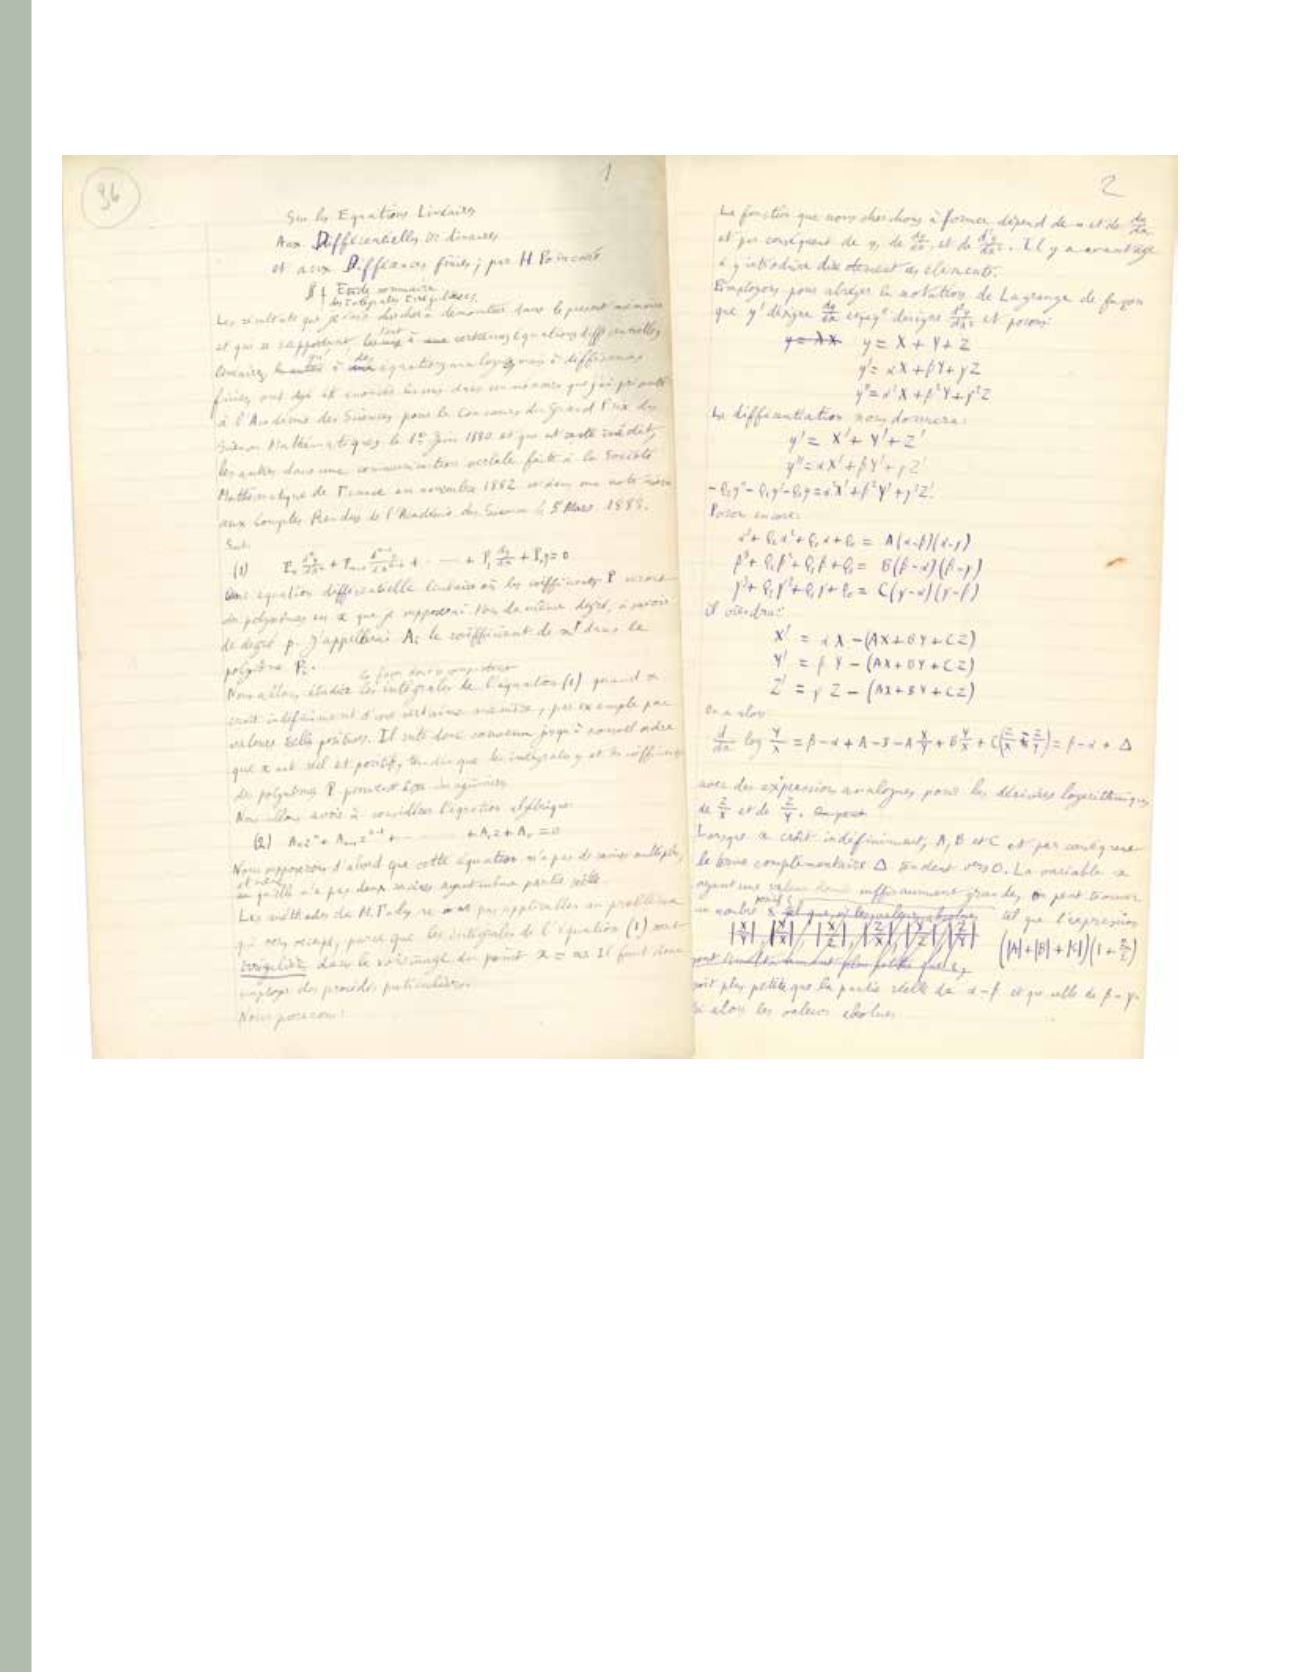 96
1
Sur les Equations Linéaires
Aux Différentielles ordinaires
et aux Différences finies; par H Poincaré
§ 1 Etude sommaire
des intégrales irrégulières.
Les résultats que je cherche à démontrer dans le présent mémoire
et qui se rapportent tant à certaines équations différentielles
linéaires qu'à des équations analogues mais à différences
finies, ont déjà été énoncés les uns dans un mémoire que j'ai présenté
à l'Académie des Sciences pour le Concours du Grand Prix des
Sciences Mathématiques le 1er Juin 1880 et qui est resté inédit,
les autres dans une communication verbale faite à la Société
Mathématique de France en novembre 1882 et dans une note insérée
aux Comptes Rendus de l'Académie des Sciences le 5 Mars 1883.
Soit
(1) Pₙ dⁿy/dxⁿ + Pₙ₋₁ dⁿ⁻¹y/dxⁿ⁻¹ + ... + P₁ dy/dx + P₀y = 0
une équation différentielle linéaire où les coefficients P seront
des polynômes en x que je supposerai tous de même degré, à savoir
de degré p. J'appellerai Aᵢ le coefficient de xᵖ dans le
polynôme Pᵢ.
Nous allons étudier les intégrales de l'équation (1) quand x
croît indéfiniment d'une certaine manière, par exemple par
valeurs réelles positives. Il reste donc convenu jusqu'à nouvel ordre
que x est réel et positif, tandis que les intégrales y et les coefficients
des polynômes P peuvent être imaginaires.
Nous allons avoir à considérer l'équation algébrique
(2) Aₙzⁿ + Aₙ₋₁zⁿ⁻¹ + ... + A₁z + A₀ = 0
Nous supposerons d'abord que cette équation n'a pas de racines multiples,
et même
qu'elle n'a pas deux racines ayant même partie réelle
Les méthodes de M. Fuchs ne sont pas applicables au problème
qui nous occupe, parce que les intégrales de l'équation (1) sont
irrégulières dans le voisinage du point x = ∞ Il faut donc
employer des procédés particuliers.
Nous poserons:
2
La fonction que nous cherchons à former dépend de u et de du/dx
et par conséquent de y, de dy/dx, et de d²y/dx². Il y a avantage
à y introduire directement ces éléments.
Employons pour abréger la notation de Lagrange de façon
que y' désigne dy/dx et que y" désigne d²y/dx² et posons:
y = λX y = X + Y + Z
y' = αX + βY + γZ
y" = α²X + β²Y + γ²Z
La différentiation nous donnera:
y' = X' + Y' + Z'
y" = αX' + βY' + γZ'
-Q₂y" - Q₁y' - Q₀y = α²X' + β²Y' + γ²Z'.
Posons encore:
α³ + Q₂α² + Q₁α + Q₀ = A(α-β)(α-γ)
β³ + Q₂β² + Q₁β + Q₀ = B(β-α)(β-γ)
γ³ + Q₂γ² + Q₁γ + Q₀ = C(γ-α)(γ-β)
il viendra:
X' = αX - (AX + BY + CZ)
Y' = βY - (AX + BY + CZ)
Z' = γZ - (AX + BY + CZ)
On a alors
d/dx log Y/X = β - α + A - B - A X/Y + B Y/X + C(Z/X - Z/Y) = β - α + Δ
avec des expressions analogues pour les dérivées logarithmiques
de Z/X et de Z/Y. On peut
Lorsque x croît indéfiniment, A, B et C, et par conséquent
le terme complémentaire Δ tendent vers 0. La variable x
ayant une valeur suffisamment grande, on peut trouver
positif
un nombre tel que, si les valeurs absolues tel que l'expression
|X/Y|, |Y/X|, |X/Z|, |Z/X|, |Y/Z|, |Z/Y| (|A|+|B|+|C|)(1+
sont plus petites que
soit plus petite que la partie réelle de α-β et que celle de β-γ.
si alors les valeurs absolues